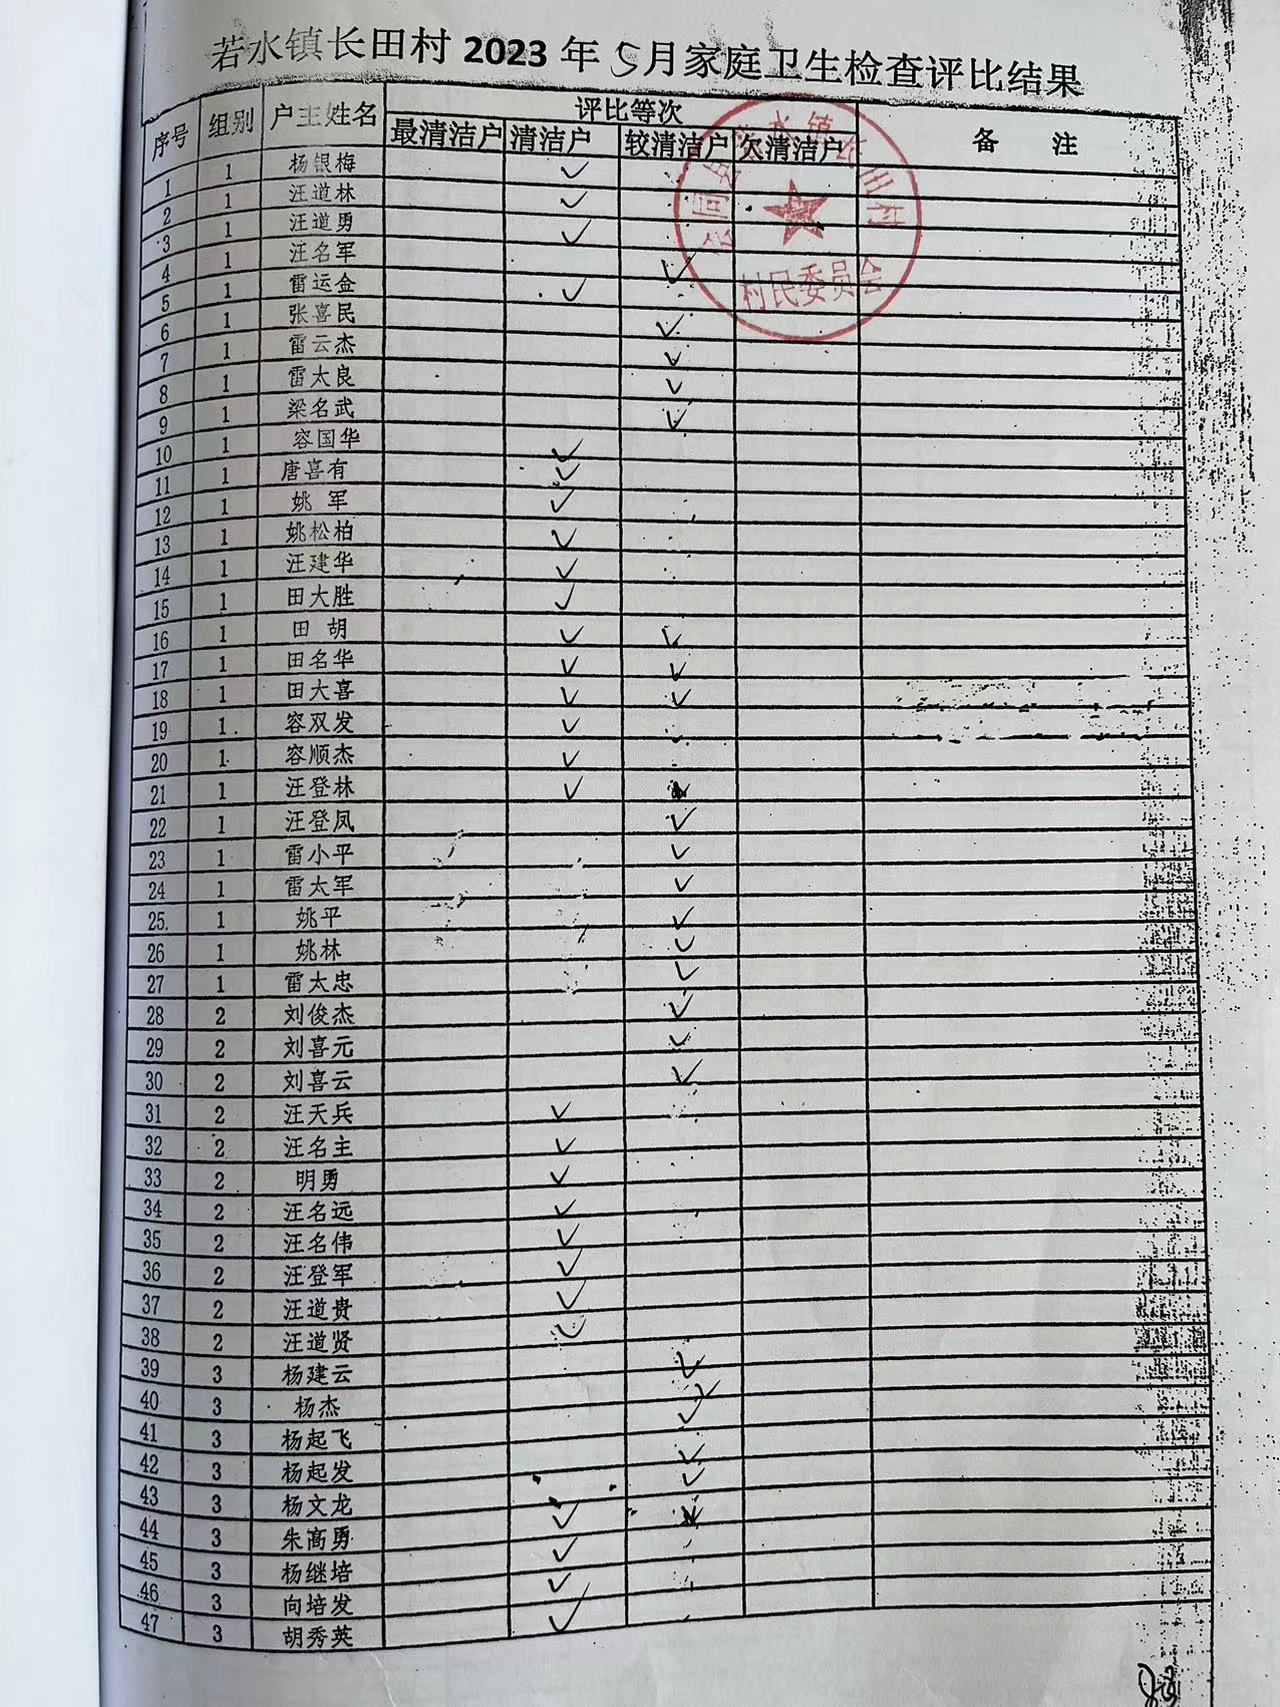 若水镇长田村2023年5月家庭卫生检查评比结果
序号 组别 户主姓名 评比等次 备 注
最清洁户 清洁户 较清洁户 欠清洁户
1 1 杨银梅 ✓
2 1 汪道林 ✓
3 1 汪道勇 ✓
4 1 汪名军 ✓
5 1 雷运金 ✓
6 1 张喜民 ✓
7 1 雷云杰 ✓
8 1 雷太良 ✓
9 1 梁名武 ✓
10 1 容国华 ✓
11 1 唐喜有 ✓
12 1 姚 军 ✓
13 1 姚松柏 ✓
14 1 汪建华 ✓
15 1 田大胜 ✓
16 1 田 胡 ✓ ✓
17 1 田名华 ✓ ✓
18 1 田大喜 ✓ ✓
19 1 容双发 ✓
20 1 容顺杰 ✓
21 1 汪登林 ✓
22 1 汪登凤 ✓
23 1 雷小平 ✓
24 1 雷太军 ✓
25 1 姚平 ✓
26 1 姚林 ✓
27 1 雷太忠 ✓
28 2 刘俊杰 ✓
29 2 刘喜元 ✓
30 2 刘喜云 ✓
31 2 汪天兵 ✓
32 2 汪名主 ✓
33 2 明勇 ✓
34 2 汪名远 ✓
35 2 汪名伟 ✓
36 2 汪登军 ✓
37 2 汪道贵 ✓
38 2 汪道贤 ✓
39 3 杨建云 ✓
40 3 杨杰 ✓
41 3 杨起飞 ✓
42 3 杨起发 ✓
43 3 杨文龙 ✓
44 3 朱高勇 ✓
45 3 杨继培 ✓
46 3 向培发 ✓
47 3 胡秀英 ✓
会同县若水镇长田村
村民委员会